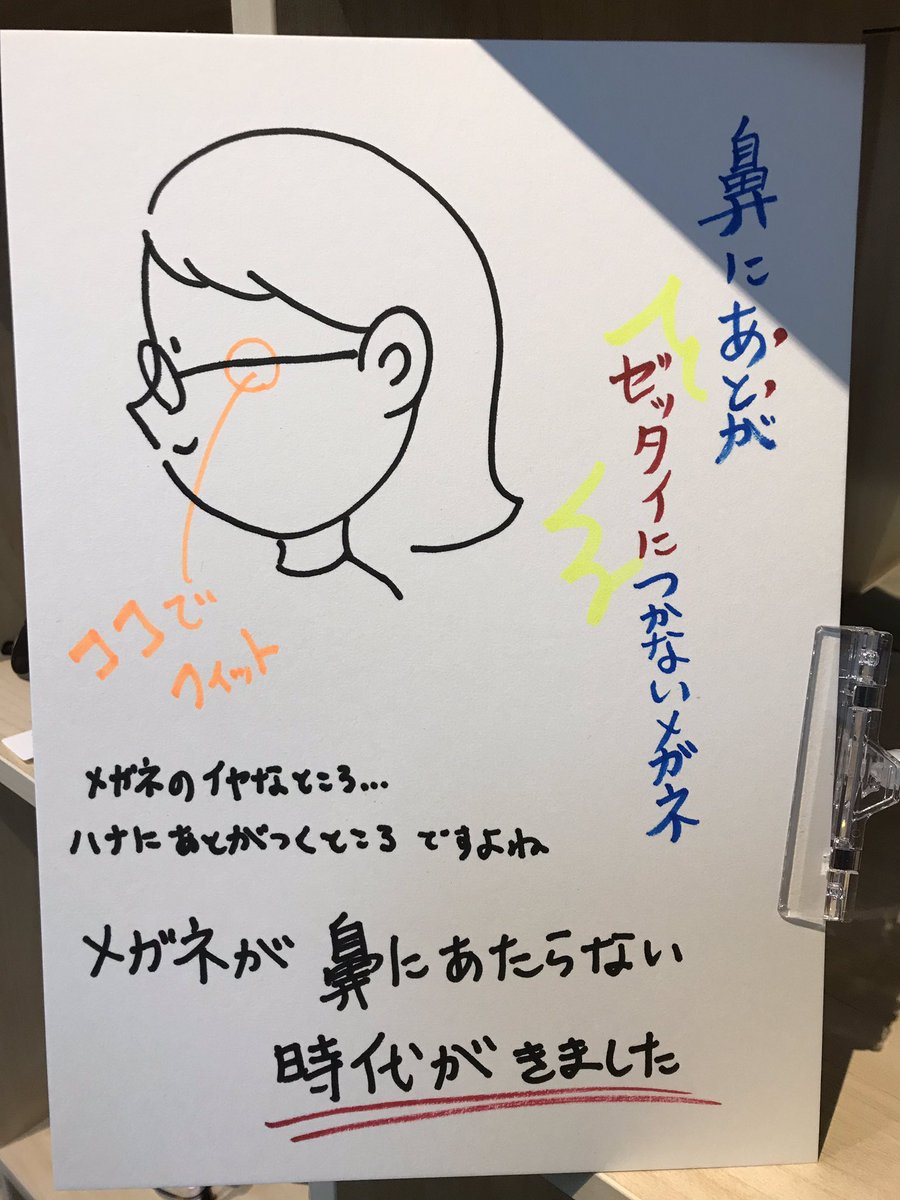 鼻にあとが
ゼッタイにつかないメガネ
ココで
フィット
メガネのイヤなところ...
ハナにあとがつくところですよね
メガネが鼻にあたらない
時代がきました